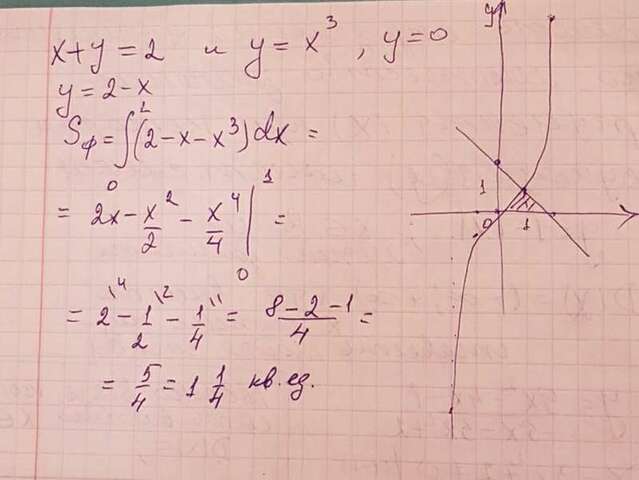 x+y=2 и y=x³, y=0
y=2-x
Sф=∫₀²(2-x-x³)dx=
=2x-x²/2-x⁴/4|₀¹=
=2\⁴-1/2\²-1/4\¹=(8-2-1)/4=
=5/4=1 1/4 кв.ед.
y
1
0
1